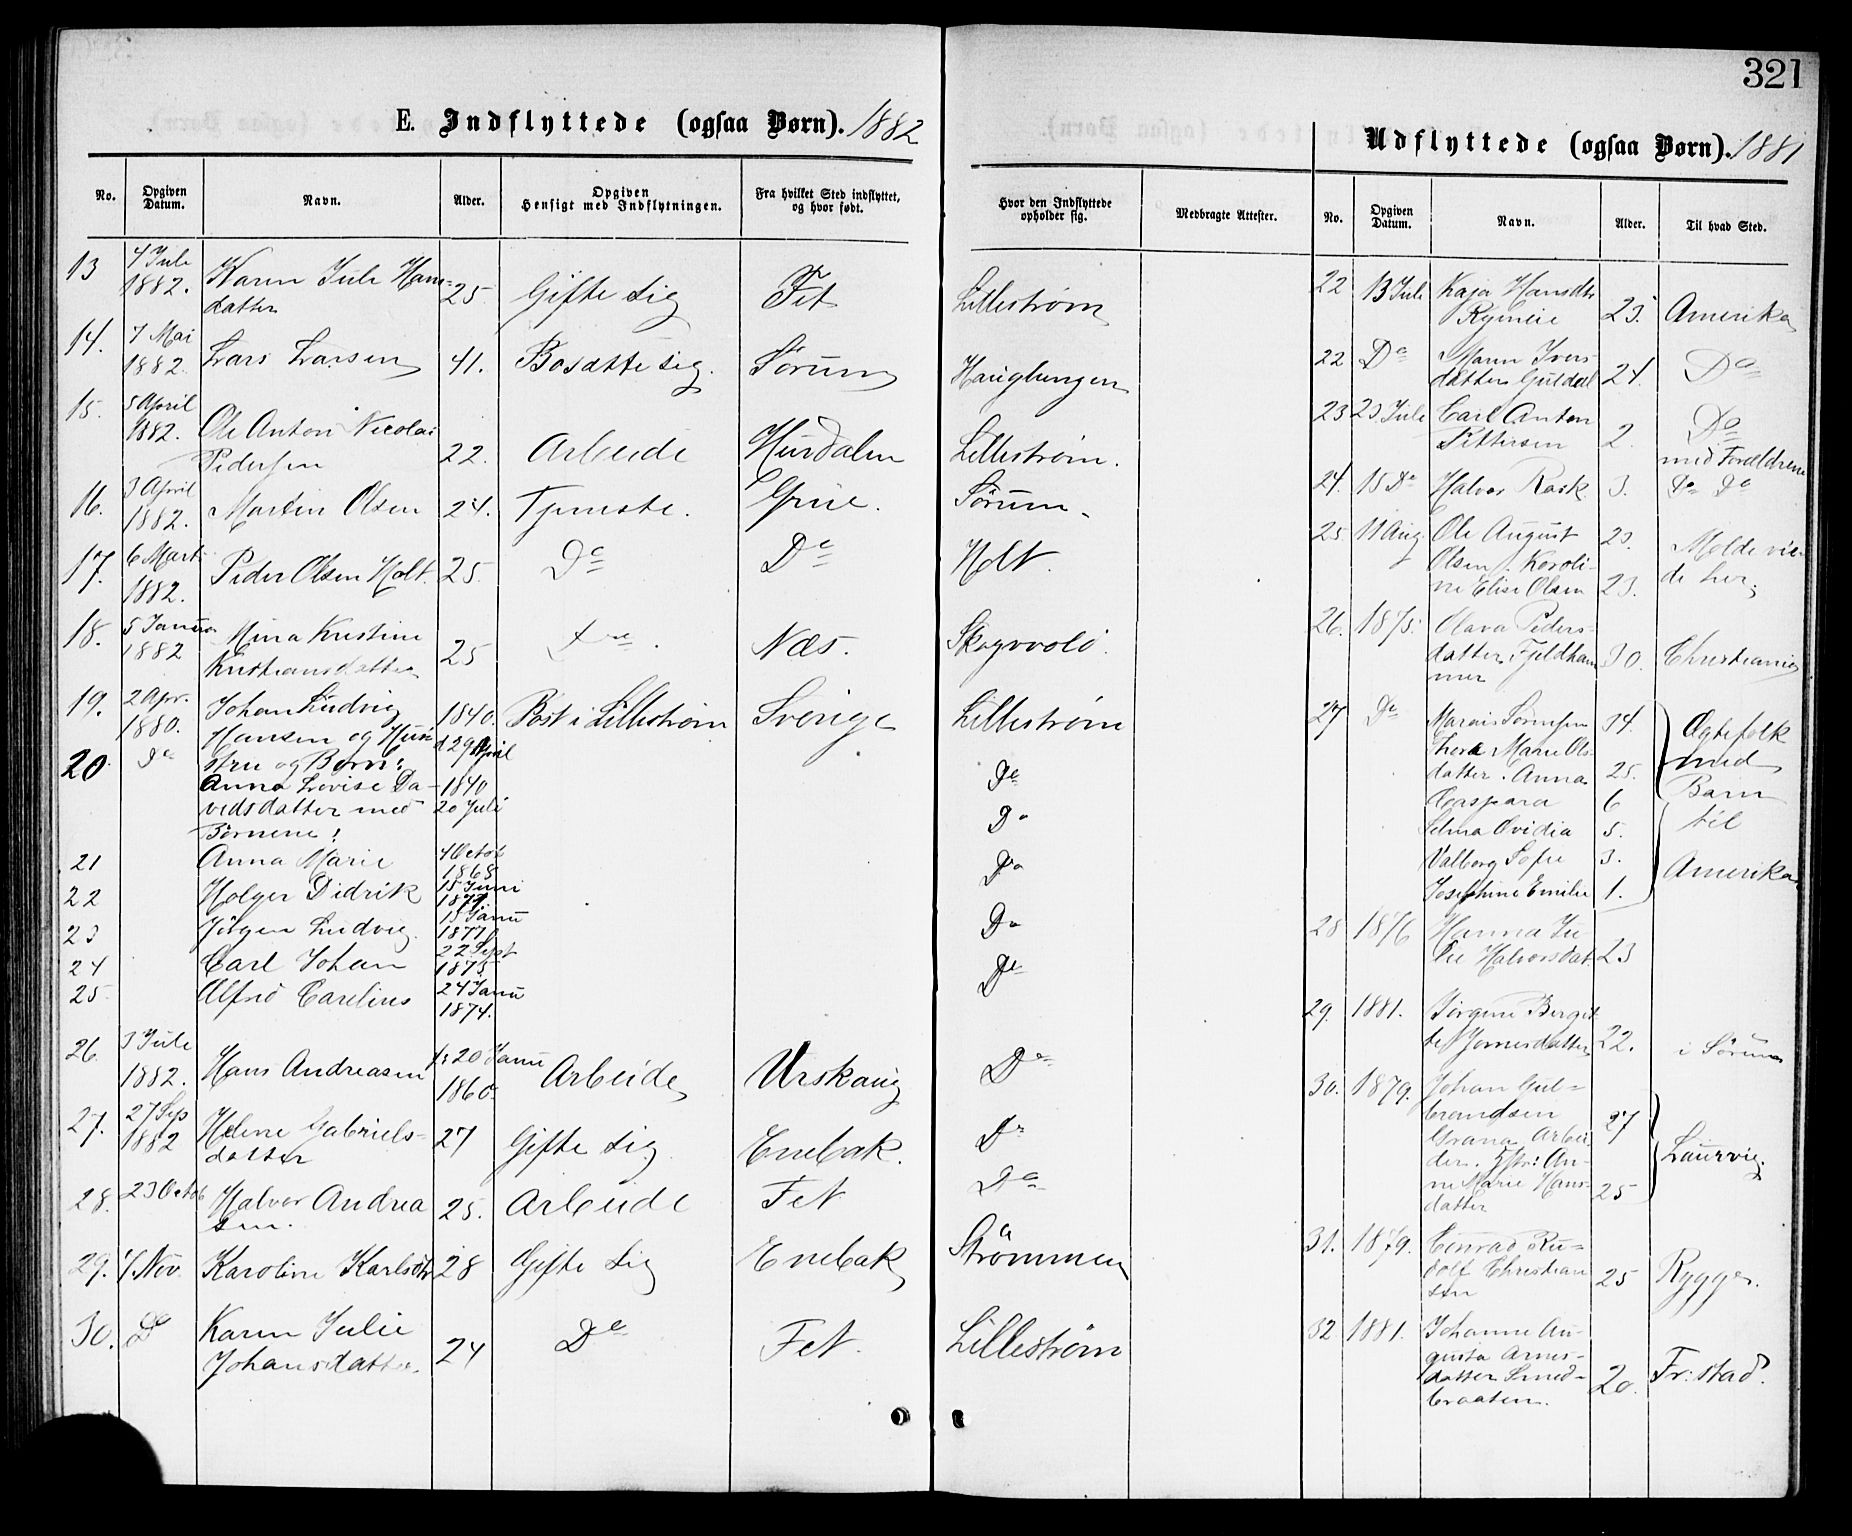 321
E. Indflyttede (ogsaa Børn). 1882
No. Opgiven Datum. Navn. Alder. Opgiven Hensigt med Indflytningen. Fra hvilket Sted indflyttet, og hvor født. Hvor den Indflyttede opholder sig. Medbragte Attester.
13 4 Juli 1882. Karen Juli Hans-
datter 25 Gifte sig Fet Lillestrøm
14. 7 Mai 1882 Lars Larsen 41. Bosætte sig. Sørum
15. 5 April 1882. Ole Anton Nicolai
Pedersen 22. Arbeide Hurdalen Lillestrøm.
16. 3 April 1882. Martin Olsen 24. Tjeneste. Grue. Sørum.
17. 6 Marts 1882. Peder Olsen Holt. 25. Do Do Holt.
18. 5 Janua 1882 Mina Kristine
Kristiansdatter 25 Næs.
19. 2 Apr. 1880. Johan Ludvig 1840. Post i Lillestrøm Sverige Lillestrøm
Hansen og Hu- 29 April
20. Do stru og Børn: Do
Anna Lovise Da- 1840
vidsdatter med 20 Juli Do
Børnene:
21 Anna Marie 4 Octob 1868 Do
22 Holger Didrik 15 Juni
23 Jörgen Ludvig 15 Janu Do
24 Carl Johan 22 Sept 1875
25 Alfred Carelius 24 Janu 1874. Do
26. 3 Juli 1882. Hans Andreasen 20 Janu 1860. Arbeide Urskoug Do
27. 27 Sep 1882 Helene Gabriels-
datter 27 Gifte sig Enebak. Do
28. 23 Octob Halvor Andrea
sen. 25. Arbeide Fet Do
29. 4 Nov. Karoline Karlsdtr 28 Gifte sig Enebak Strömmen
30. Do Karen Julie
Johansdatter. 24 Do Fet. Lillestrøm
Udflyttede (ogsaa Børn). 1881
No. Opgiven Datum. Navn. Alder. Til hvad Sted.
22 13 Juli Kaja Hansdtr
23. Amerika
22 Do Maren Ivers-
datter Guldal 24. Do
23 23 Juli Carl Anton
Pettersen 2. Do
med Forældrene
24. 15 Do Halvor Rask 3. Do Do
25 11 Aug. Ole August 23.
Olsen f. Karoli-
ne Elise Olsen 23.
26. 1875. Olava Peders-
datter, Fjeldham
mer 30. Christiania
27 Do 34. Ægtefolk
Thea Marie Ols- med
datter. Anna 25. Barn
Caspara 6 til
Selma Ovidia 5. Amerika
Valborg Sofie 3.
Josephine Emilie 1.
28 1876 Hanna Ju-
lie Halvorsdat 23
29. 1881. Jörgine Bergit-
te 22. i Sörum
30. 1879. Johan Gul-
brandsen 27
Grana, Arbei
der. Hstr: An-
ne Marie Hans- 25
datter Laurvig.
31. 1879. Conrad Ru-
dolf Christian
sen 25 Rygge.
32 1881. Johanne Au-
gusta Arnes-
datter Smed-
braaten. 20. Fr: stad.